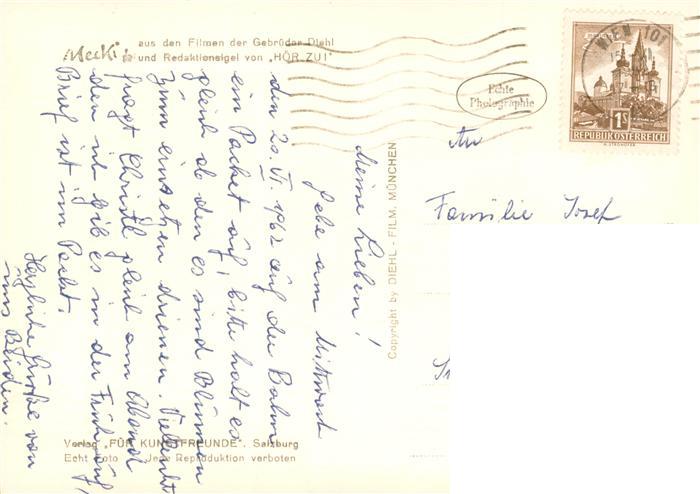 Mecki aus den Filmen der Gebrüder Diehl
und Redaktionsigel von "HÖR ZU!"
WIEN 101
Echte
Photographie
1S
REPUBLIK ÖSTERREICH
An
Familie Josef
Copyright by DIEHL - FILM, MÜNCHEN
Meine Lieben!
Gebe am Mittwoch
den 20. VI. 1962 auf der Bahn
ein Packet auf, bitte holt es
gleich ab den es sind Blumen
zum einsetzen drinnen. Vielleicht
fragt Christl gleich am Abend
den ich gib es in der Früh auf,
Brief ist im Packt.
Herzliche Grüße von
uns Beiden.
Verlag "FÜR KUNSTFREUNDE", Salzburg
Echt Foto Jede Reproduktion verboten